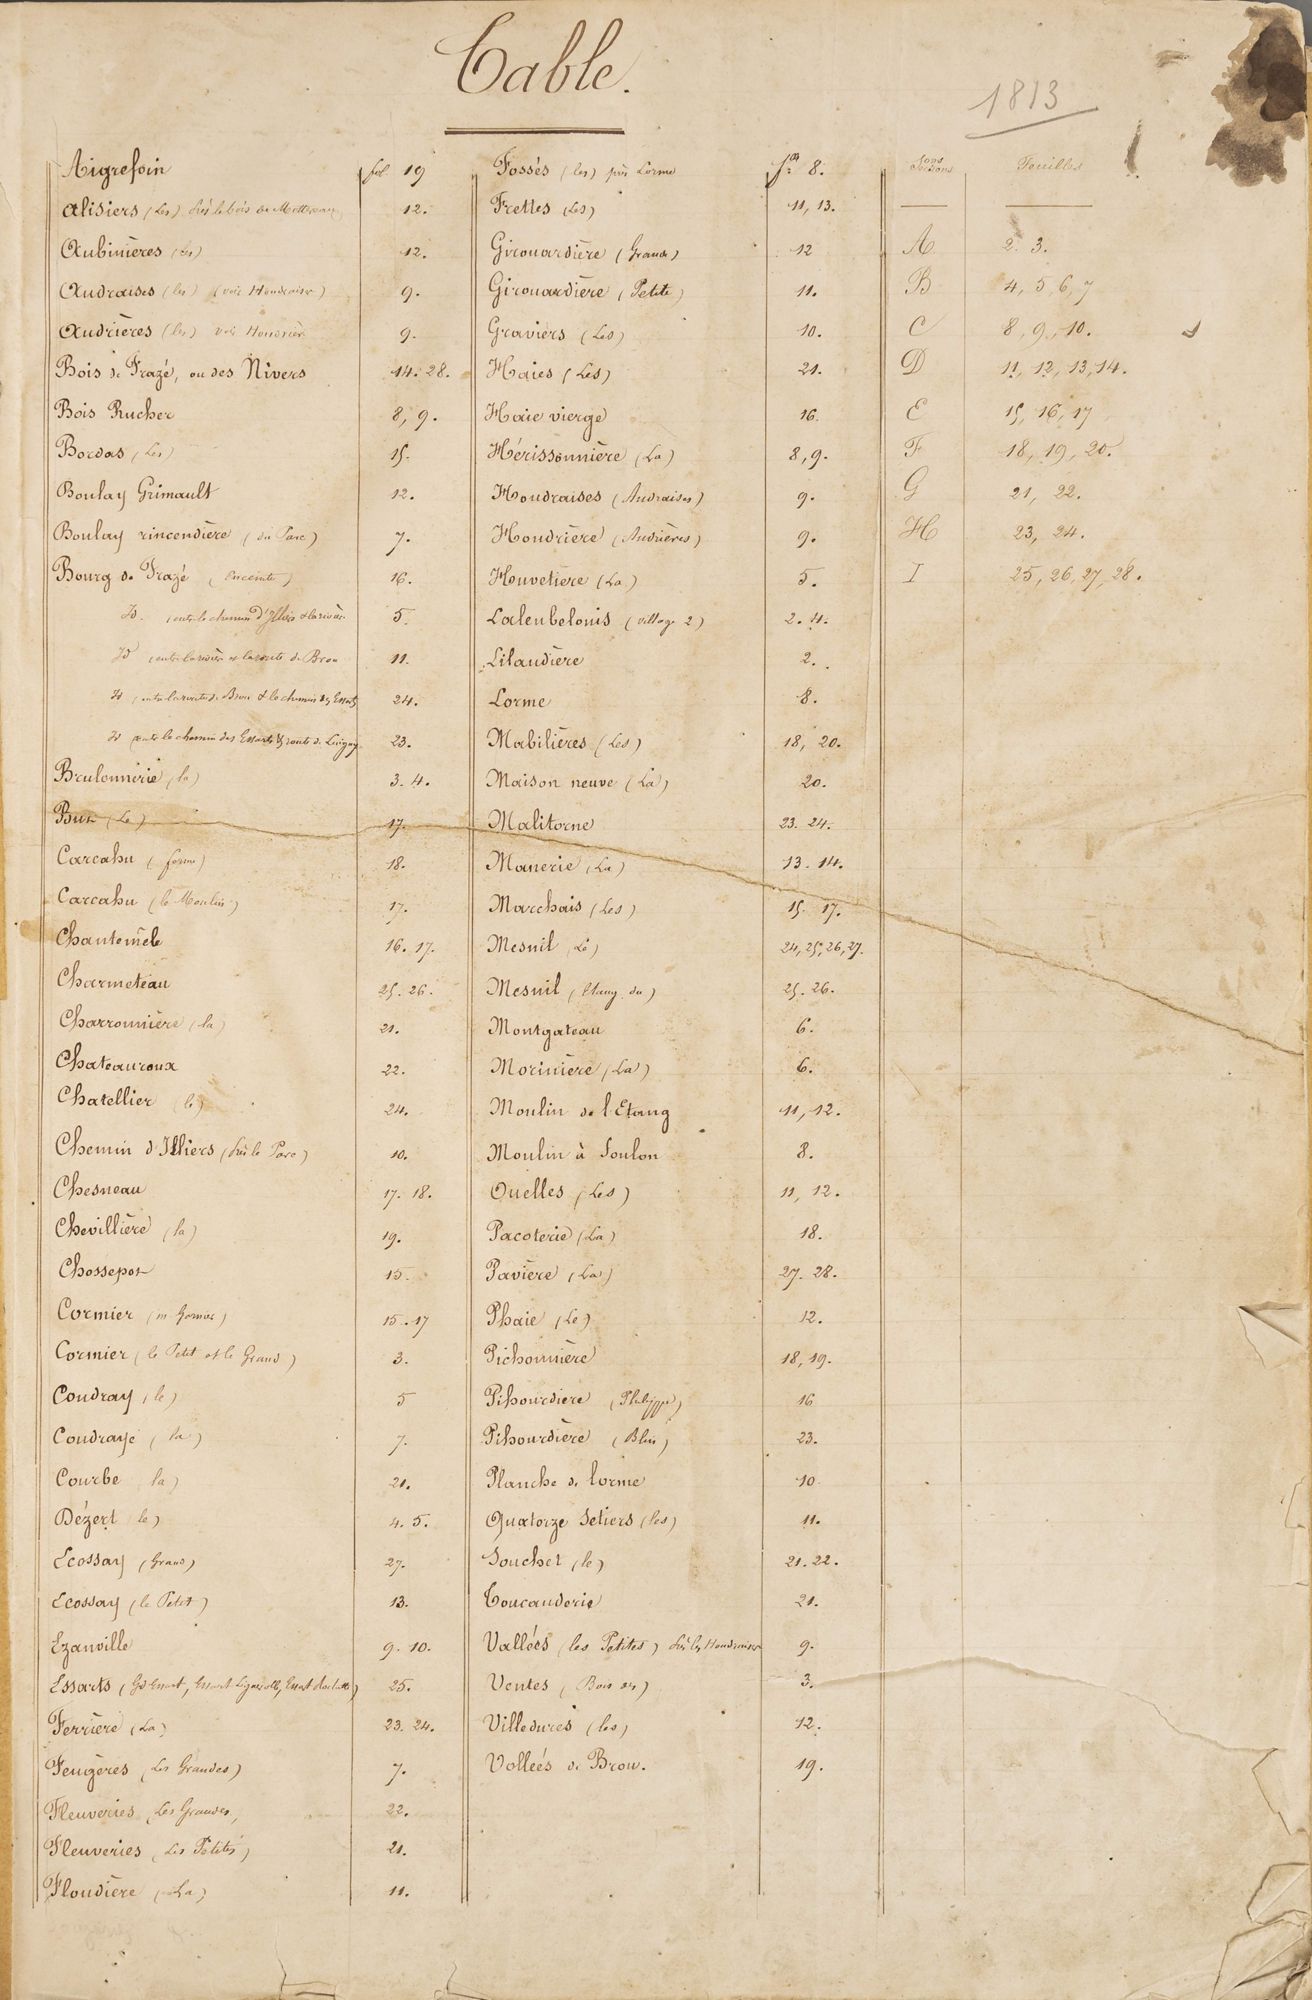 Table.
1813
Aigrefoin fol 19
Alisiers (Les) près le bois de Mottereau 12.
Aubinières (les) 12.
Audraises (les) (voir Houdraises) 9.
Audrières (les) voir Houdrière 9.
Bois de Frazé, ou des Nivers 14. 28.
Bois Rucher 8, 9.
Bordas (Les) 15.
Boulay Grimault 12.
Boulay rincendière (du Parc) 7.
Bourg de Frazé (enceinte) 16.
Id. (entre le chemin d'Illiers & la rivière 5.
Id (entre la rivière et la route de Brou 11.
Id (entre la route de Brou & le chemin des Essarts 24.
Id (entre le chemin des Essarts & route de Luigny 23.
Brulonnerie (la) 3. 4.
Buis (Le) 17.
Carcahu (ferme) 18.
Carcahu (le Moulin) 17.
Chantemêle 16. 17.
Charmeteau 25. 26.
Charronnière (la) 21.
Chateauroux 22.
Chatellier (le) 24.
Chemin d'Illiers (près le Parc) 10.
Chesneau 17. 18.
Chevillière (la) 19.
Chossepot 15.
Cormier (m. Garnier) 15. 17
Cormier (le Petit et le Grand) 3.
Coudray (le) 5
Coudraye (la) 7.
Courbe (la) 21.
Dézert (le) 4. 5.
Ecossay (Grand) 27.
Ecossay (le Petit) 13.
Ezanville 9. 10.
Essarts (Gd Essart, Essart 25.
Ferrière (La) 23. 24.
Feugères (Les Grandes) 7.
Fleuveries (Les Grandes, 22.
Fleuveries (Les Petites) 21.
Floudière (La) 11.
Fossés (les) près Lorme fo 8.
Frettes (Les) 11, 13.
Girouardière (Grande) 12
Girouardière (Petite) 11.
Graviers (Les) 10.
Haies (Les) 21.
Haie vierge 16.
Hérissonnière (La) 8, 9.
Houdraises (Audraises) 9.
Houdrière (Audrières) 9.
Houvetière (La) 5.
Laleubelouis (village 2) 2. 4.
Lilaudière 2.
Lorme 8.
Mabilières (Les) 18, 20.
Maison neuve (La) 20.
Malitorne 23. 24.
Manerie (La) 13. 14.
Marchais (Les) 15. 17.
Mesnil (Le) 24, 25, 26, 27.
Mesnil (Etang du) 25. 26.
Montgateau 6.
Morinière (La) 6.
Moulin de l'Etang 11, 12.
Moulin à Foulon 8.
Ouelles (Les) 11, 12.
Pacoterie (La) 18.
Pavière (La) 27. 28.
Phaie (Le) 12.
Pichonnière 18, 19.
Pihourdière (Philippe) 16
Pihourdière (Blin) 23.
Planche de Lorme 10
Quatorze Setiers (les) 11.
Souchet (le) 21. 22.
Toucauderie 21.
Vallées (les Petites) près les Houdraises 9.
Ventes (Bois des) 3.
Villedures (les) 12.
Vollées de Brou. 19.
Sections Feuilles
A 2. 3.
B 4, 5, 6, 7
C 8, 9, 10.
D 11, 12, 13, 14.
E 15, 16, 17
F 18, 19, 20.
G 21, 22.
H 23, 24.
I 25, 26, 27, 28.